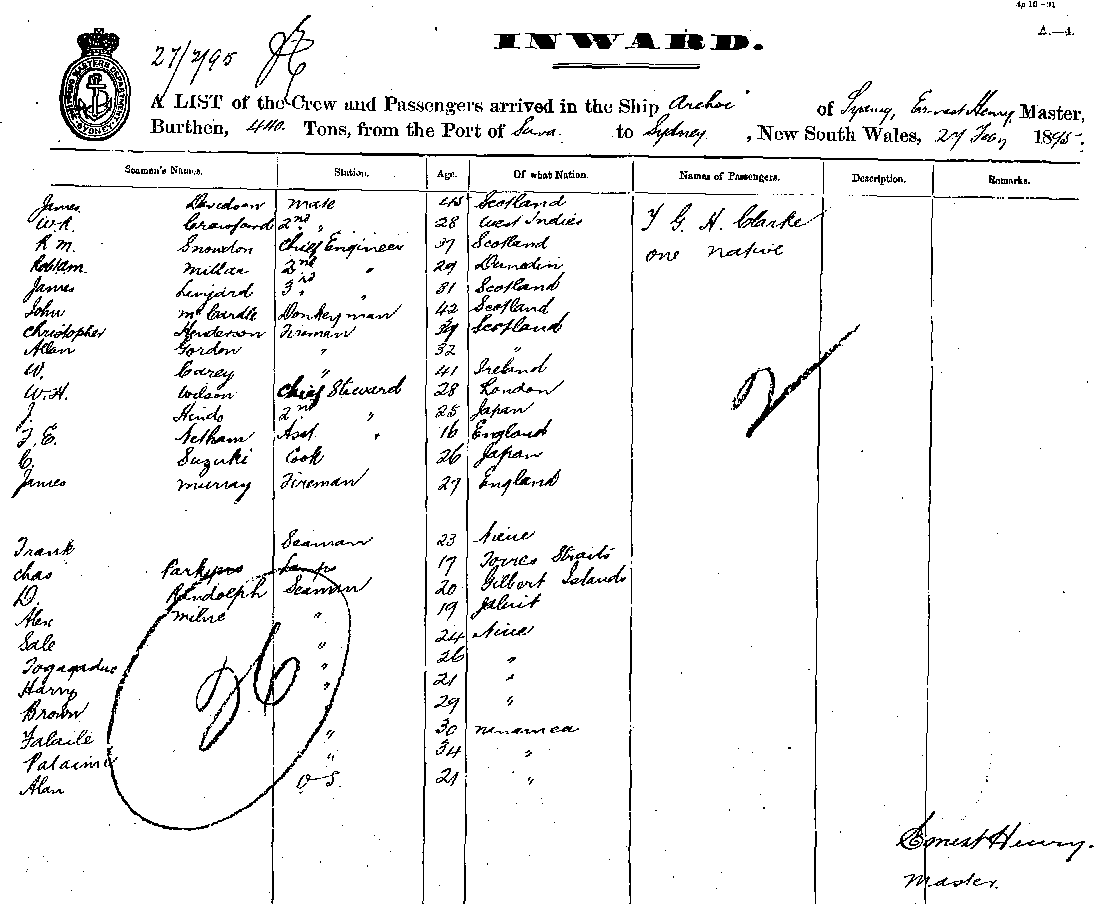 4p 10-91
A.—4.
27/2/95
INWARD.
A LIST of the Crew and Passengers arrived in the Ship Archer of Sydney, Ernest Henry Master,
Burthen, 440. Tons, from the Port of Suva to Sydney, New South Wales, 27 Feby 1895.
Seamen's Names. Station. Age. Of what Nation. Names of Passengers. Description. Remarks.
James Davidson Mate 45 Scotland
W.R. Crawford 2nd " 28 West Indies T G. H. Clarke
R. M. Snowdon Chief Engineer 37 Scotland one native
Millar 2nd " 29 Dunedin
James 3rd " 31 Scotland
John McCardle Donkeyman 42 Scotland
Christopher Henderson Fireman 39 Scotland
Allan Gordon " 32 "
W. Carey " 41 Ireland
W.H. Wilson Chief Steward 28 London
J. Hindo 2nd " 25 Japan
J. E. Netham Asst " 16 England
C. Suzuki Cook 26 Japan
James Murray Fireman 27 England
2
Frank Seaman 23 Niue
Chas Parkyns Lamps 17 Torres Straits
D. Randolph Seaman 20 Gilbert Islands
Alex Milne " 19 Jaluit
Sale " 24 Niue
" 26 "
Harry " 21 "
Brown 29 "
Falaile " 30
" 34 "
Alan O.S. 21 "
26
Ernest Henry.
Master.